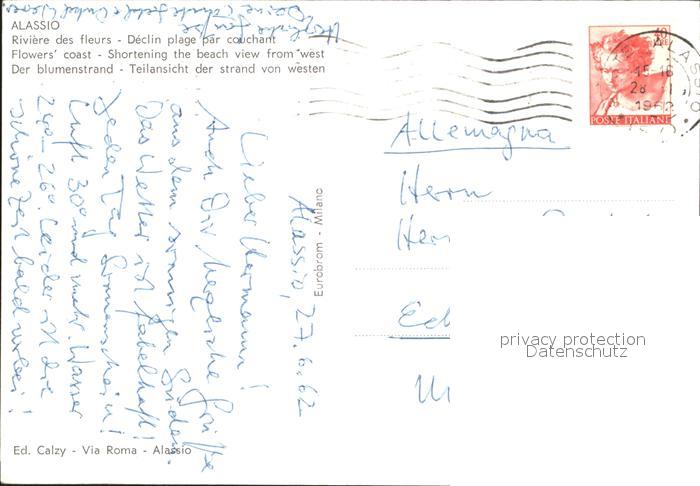 ALASSIO
Rivière des fleurs - Déclin plage par couchant
Flowers' coast - Shortening the beach view from west
Der blumenstrand - Teilansicht der strand von westen
Alassio, 27.6.62
Lieber Hermann!
Auch Dir herzliche Grüße
aus dem sonnigen Süden.
Das Wetter ist fabelhaft!
Jeden Tag Sonnenschein!
Luft 30° und mehr. Wasser
24°-26°. Leider ist die
schöne Zeit bald vorbei!
Herzliche Grüße
Deine
Eurobrom - Milano
Ed. Calzy - Via Roma - Alassio
40
LIRE
POSTE ITALIANE
15-16
28
1962
Allemagna
Herrn
Her
Ed
privacy protection
Datenschutz